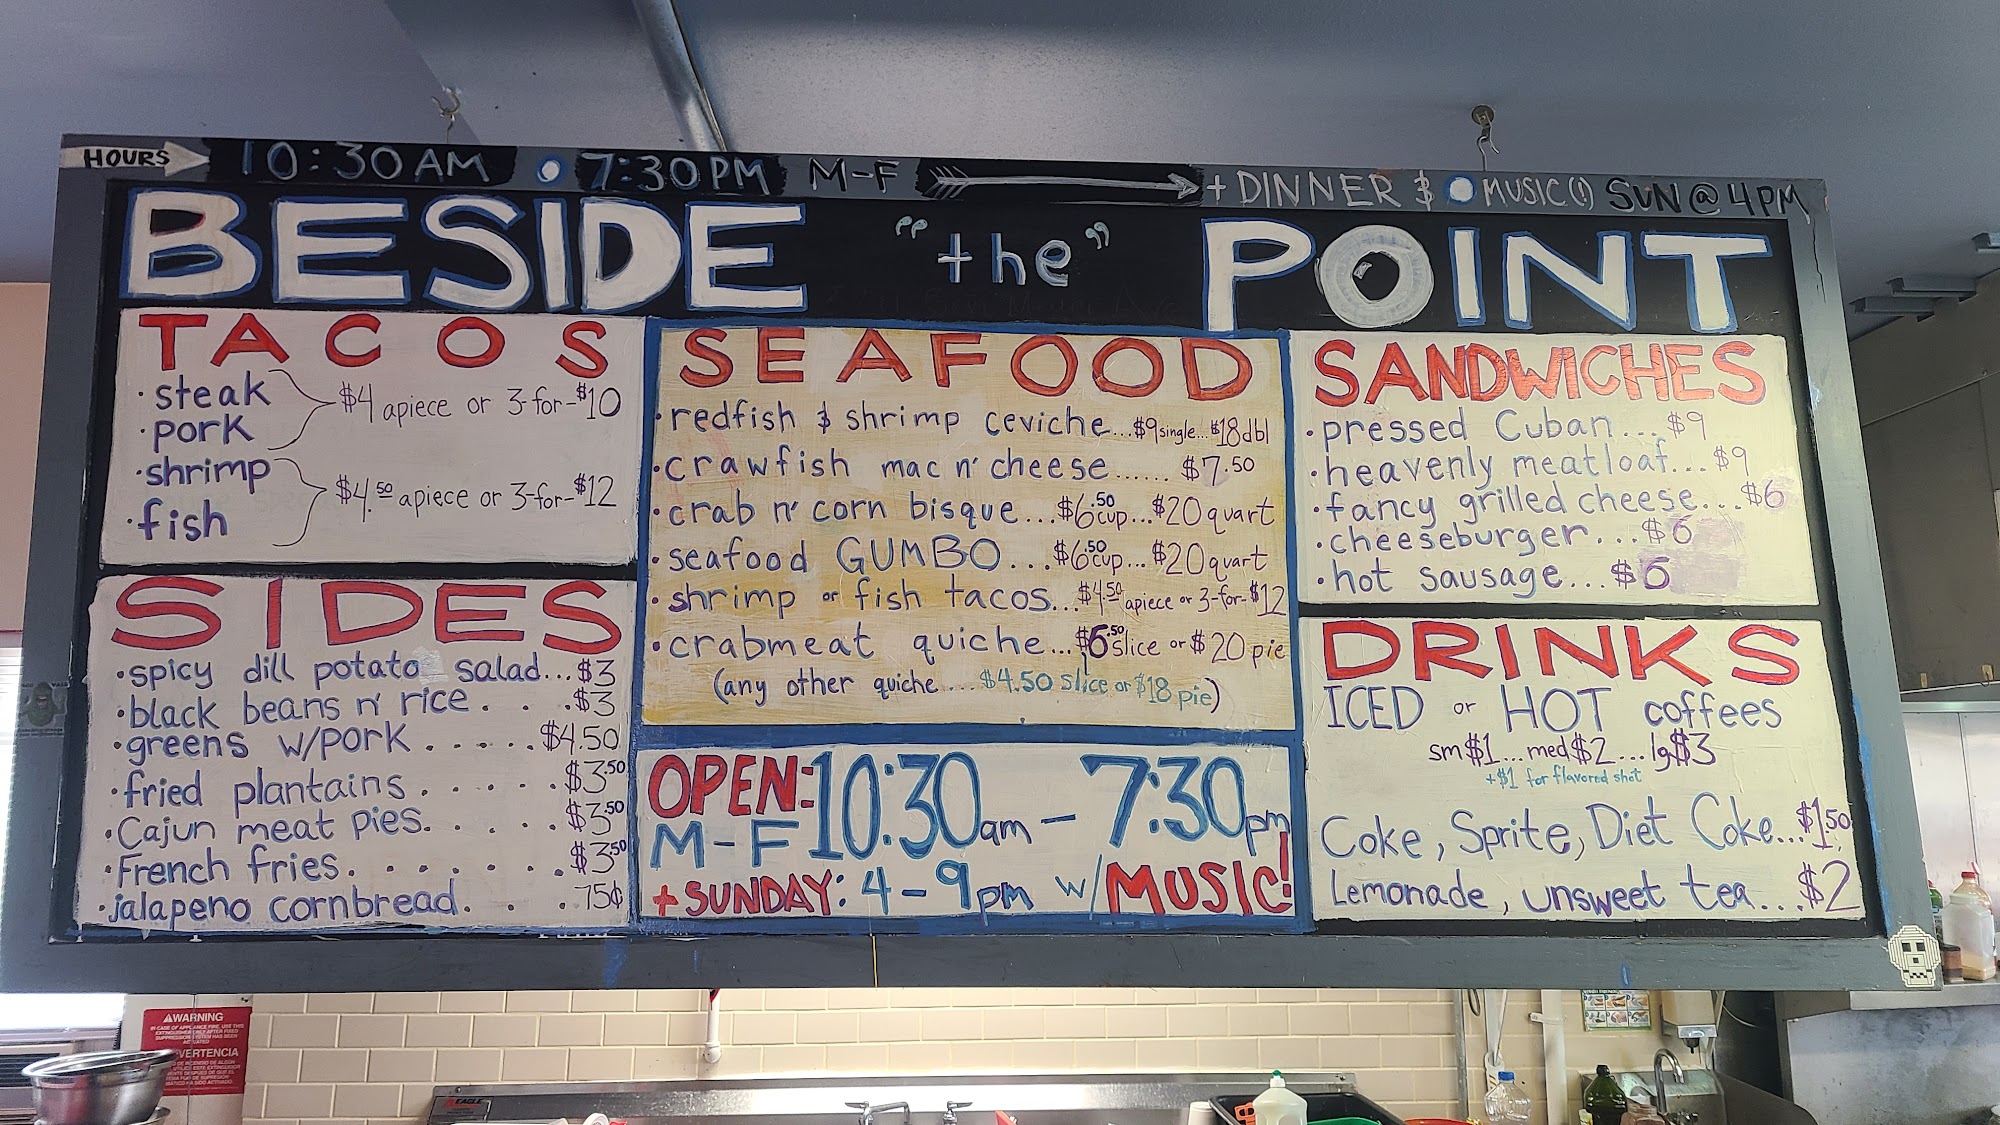 HOURS 10:30AM • 7:30PM M-F + DINNER & • MUSIC(!) SUN@4PM
BESIDE "the" POINT
TACOS
• steak
• pork
$4 apiece or 3-for-$10
• shrimp
• fish
$4.50 apiece or 3-for-$12
SIDES
• spicy dill potato salad...$3
• black beans n' rice. . .$3
• greens w/pork......$4.50
• fried plantains......$3.50
• Cajun meat pies......$3.50
• French fries.......$3.50
• jalapeno cornbread. . . .75¢
SEAFOOD
• redfish & shrimp ceviche...$9single...$18dbl
• crawfish mac n' cheese...... $7.50
• crab n' corn bisque...$6.50cup...$20quart
• seafood GUMBO...$6.50cup...$20quart
• shrimp or fish tacos...$4.50 apiece or 3-for-$12
• crabmeat quiche...$6.50slice or $20 pie
(any other quiche....$4.50 slice or $18 pie)
OPEN: 10:30am - 7:30pm
M-F
+SUNDAY: 4-9pm w/MUSIC!
SANDWICHES
• pressed Cuban...$9
• heavenly meatloaf...$9
• fancy grilled cheese...$6
• cheeseburger...$6
• hot sausage...$6
DRINKS
ICED or HOT coffees
sm$1...med$2....lg$3
+$1 for flavored shot
Coke, Sprite, Diet Coke...$1.50
Lemonade, unsweet tea...$2
WARNING
IN CASE OF APPLIANCE FIRE, USE THIS
EXTINGUISHER ONLY AFTER FIXED
SUPPRESSION SYSTEM HAS BEEN
ACTUATED
VERTENCIA
EAGLE